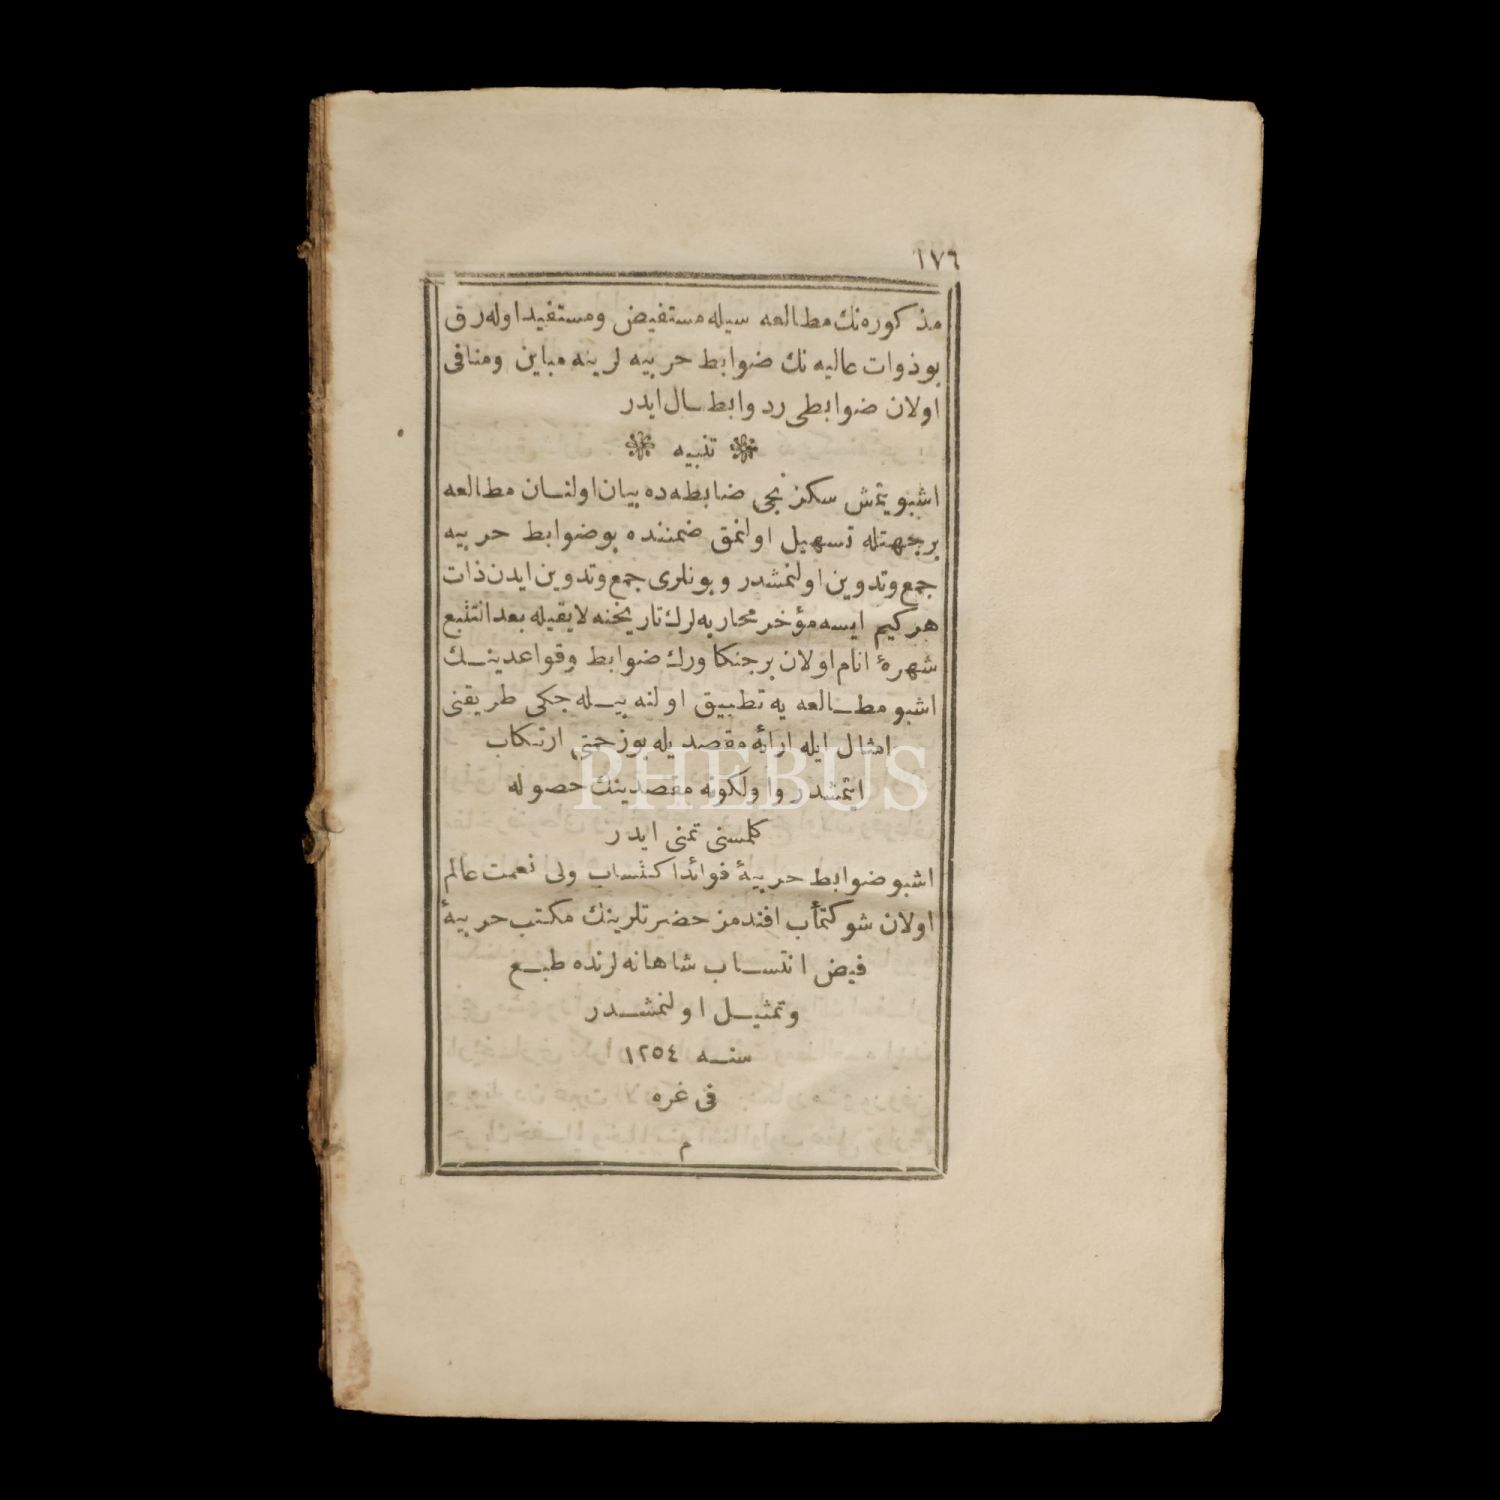 ١٧٦
مذكوره‌نك مطالعه سيله مستفيض ومستفيد اوله‌رق
بو ذوات عاليه نك ضوابط حربيه لرينه مباين ومنافى
اولان ضوابطى رد وابطـال ايدر
❋ تنبيه ❋
اشبو يتمش سكزنجى ضابطه‌ده بيان اولنـان مطالعه
برجهتله تسهيل اولنمق ضمننده بو ضوابط حربيه
جمع وتدوين اولنمشدر وبونلرى جمع وتدوين ايدن ذات
هركيم ايسه مؤخر محاربه‌لرك تاريخنه لايقيله بعد التتبع
شهرهٔ انام اولان برجنكاورك ضوابط وقواعدينـك
اشبو مطـالعه يه تطبيق اولنه بيـله جكى طريقنى
امثال ايله ارائهٔ مقصديله بوزحمتى ارتكاب
ايتمشدر واولكونه مقصدينك حصوله
كلمسنى تمنى ايدر
اشبو ضوابط حربيهٔ فوائد اكتساب ولى نعمت عالم
اولان شوكتمأب افندمز حضرتلرينك مكتب حربيهٔ
فيض انتسـاب شاهانه لرنده طبـع
وتمثيـل اولنمشـدر
سنـه ١٢٥٤
فى غره
م
PHEBUS